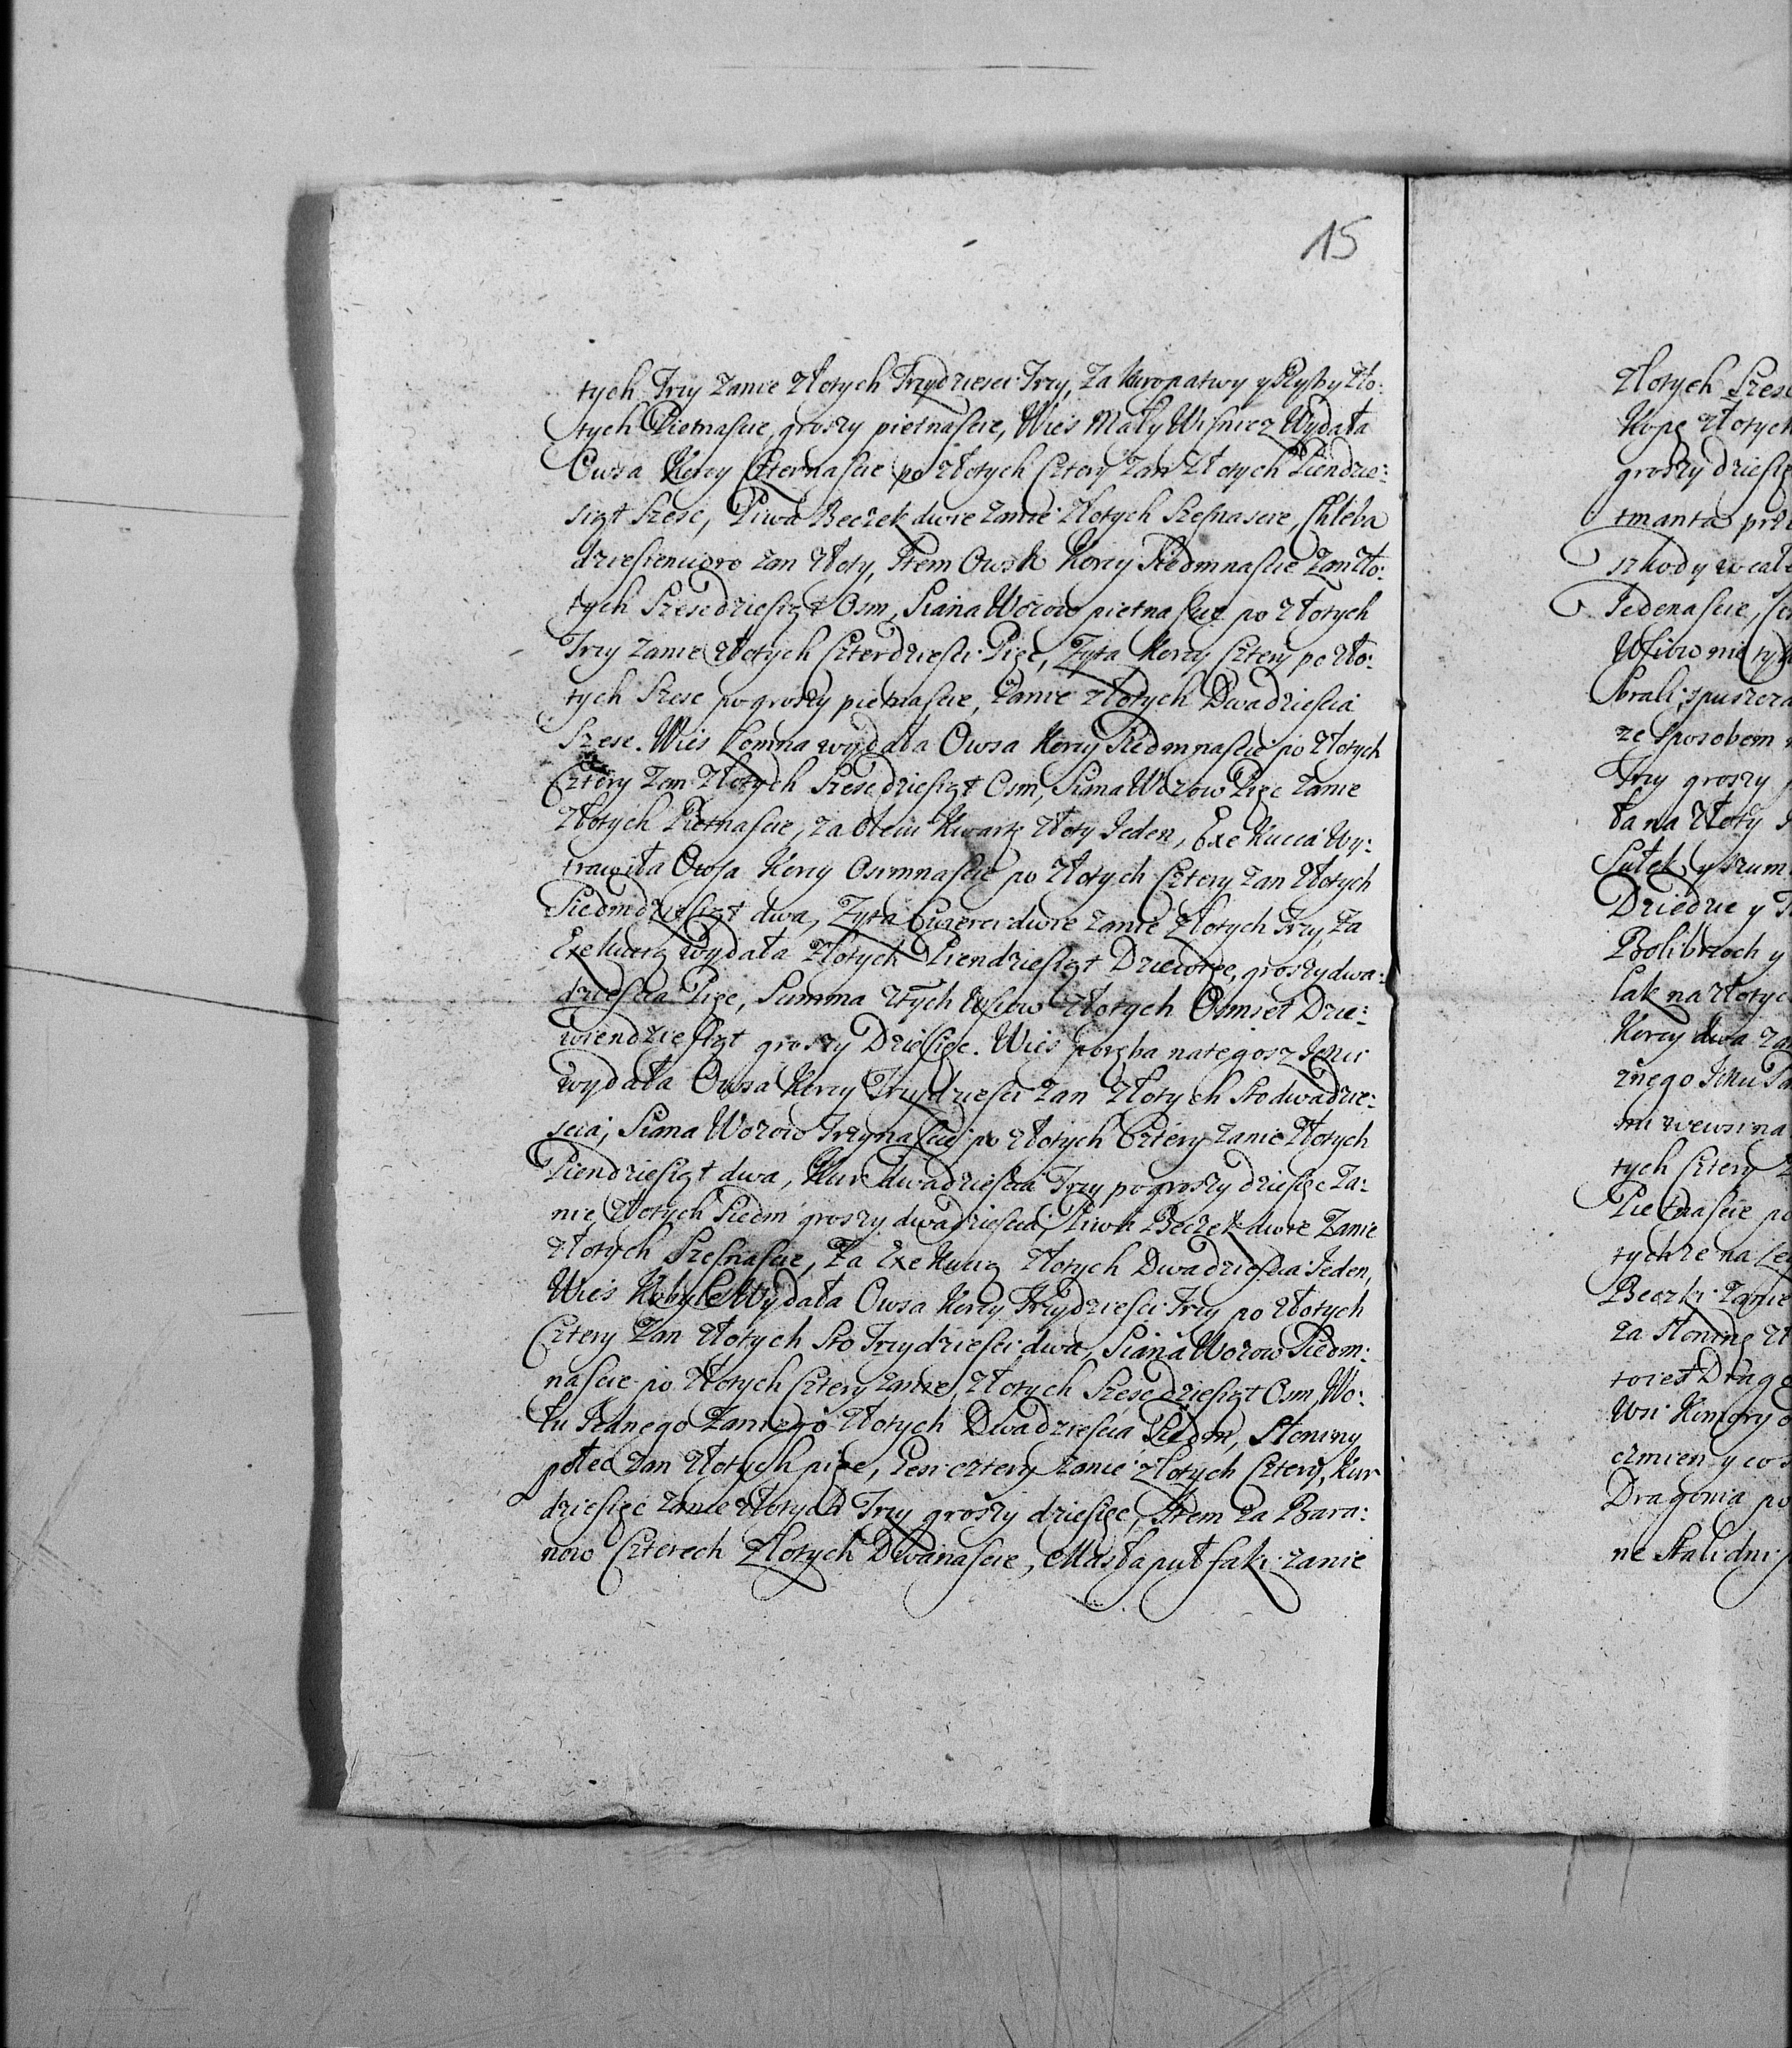 15
tych Trzy zanie Złotych Trzydziesci Trzy, Za kuropatwy y Ryby Zło:
tych Pietnascie, groszy pietnascie, Wies Mały Wisnicz Wydała
Owsa Korcy Czternascie po Złotych Cztery zan Złotych Piendzie:
siąt Szesc, Piwa Beczek dwie zanie Złotych Szesnascie, Chleba
dziesiencioro zan Złoty, Item Owsa Korcy Siedmnascie Zan Zło:
tych Szescdziesiąt Osm, Siana Wozow pietnascie po Złotych
Trzy zanie Złotych Czterdziesci Pięc, Zyta Korcy Cztery po Zło:
tych Szesc po groszy pietnascie, Zanie Złotych Dwadziescia
Szesc. Wies Łomna wydała Owsa Korcy Siedmnascie po Złotych
Cztery Zan Złotych Szescdziesiąt Osm, Siana Wozow Pięc Zanie
Złotych Pietnascie, za Oleiu Kwartę Złoty Jeden, Exekucia Wy:
trawiła Owsa Korcy Osmnascie po Złotych Cztery Zan Złotych
Siedmdziesiąt dwa, Zyta Cwierci dwie Zanie Złotych Trzy, Za
Exekucią wydała Złotych Piendziesiąt Dziewięc, groszy dwa:
dziescia Pięc, Summa z tych Wsiow Złotych Osmset Dzie:
wiendziesiąt groszy Dziesięc. Wies poręba nategosz Ichu
wydała Owsa Korcy Trzydziesci zan Złotych Sto dwadzie:
scia, Siana Wozow Trzynascie po Złotych Cztery Zanie Złotych
Piendziesiąt dwa, Kur dwadziescia Trzy po groszy dziesięc Za:
nie Złotych Siedm groszy dwadziescia, Piwa Beczek dwie Zanie
Złotych Szesnascie, Za Exekucią Złotych Dwadziescia Jeden,
Wies Kobyle Wydała Owsa Korcy Trzydziesci Trzy po Złotych
Cztery Zan Złotych Sto Trzydziesci dwa, Siana Wozow Siedm:
nascie po Złotych Cztery zanie, Złotych Szescdziesiąt Osm, Wo:
łu Jednego Zaniego Złotych Dwadziescia Siedm, Słoniny
połec Zan Złotych pięc, Gęsi cztery zanie Złotych Cztery, Kur
dziesięc zanie Złotych Trzy groszy dziesięc, Item za Bara:
now Czterech Złotych Dwanascie, Masła puł faski zanie
Złotych Szesc
Kopę Złotych
groszy
Trzy groszy
Dziedzic y
Korcy dwa
tych Cztery
Pietnascie
Beczki Zanie
za Słoninę
Dragonia